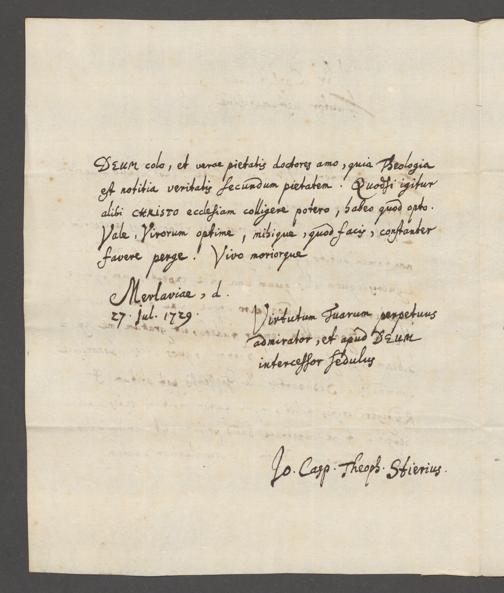 DEUM colo, et verae pietatis doctores amo, quia Theologia
est notitia veritatis secundum pietatem. Quodsi igitur
alibi CHRISTO ecclesiam colligere potero, habeo quod opto.
Vale, Virorum optime, mihique, quod facis, constanter
favere perge! Vivo moriorque
Merlaviae, d.
27. Jul. 1729.
Virtutum Tuarum perpetuus
admirator, et apud DEUM
intercessor sedulus
Jo. Casp. Theoph. Stierius.